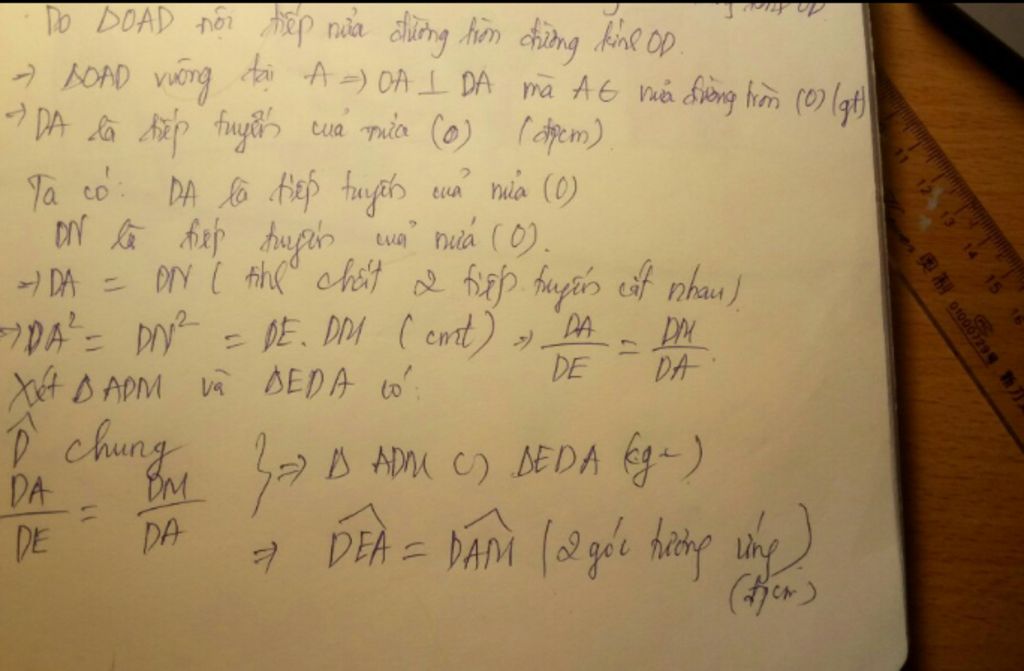 Do ΔOAD nội tiếp nửa đường tròn đường kính OD.
→ ΔOAD vuông tại A ⇒ OA ⊥ DA mà A ∈ nửa đường tròn (O) (gt)
→ DA là tiếp tuyến cuả nửa (O) (đpcm)
Ta có: DA là tiếp tuyến cuả nửa (O)
DN là tiếp tuyến cuả nửa (O).
→ DA = DN ( tính chất 2 tiếp tuyến cắt nhau)
→ DA² = DN² = DE. DM (cmt) → DA/DE = DM/DA.
Xét ΔADM và ΔEDA có:
D̂ chung
DA/DE = DM/DA } ⇒ Δ ADM ∽ ΔEDA (cgc)
⇒ DÊA = DÂM (2 góc tương ứng)
(đpcm)
11 12 13 14 15 16